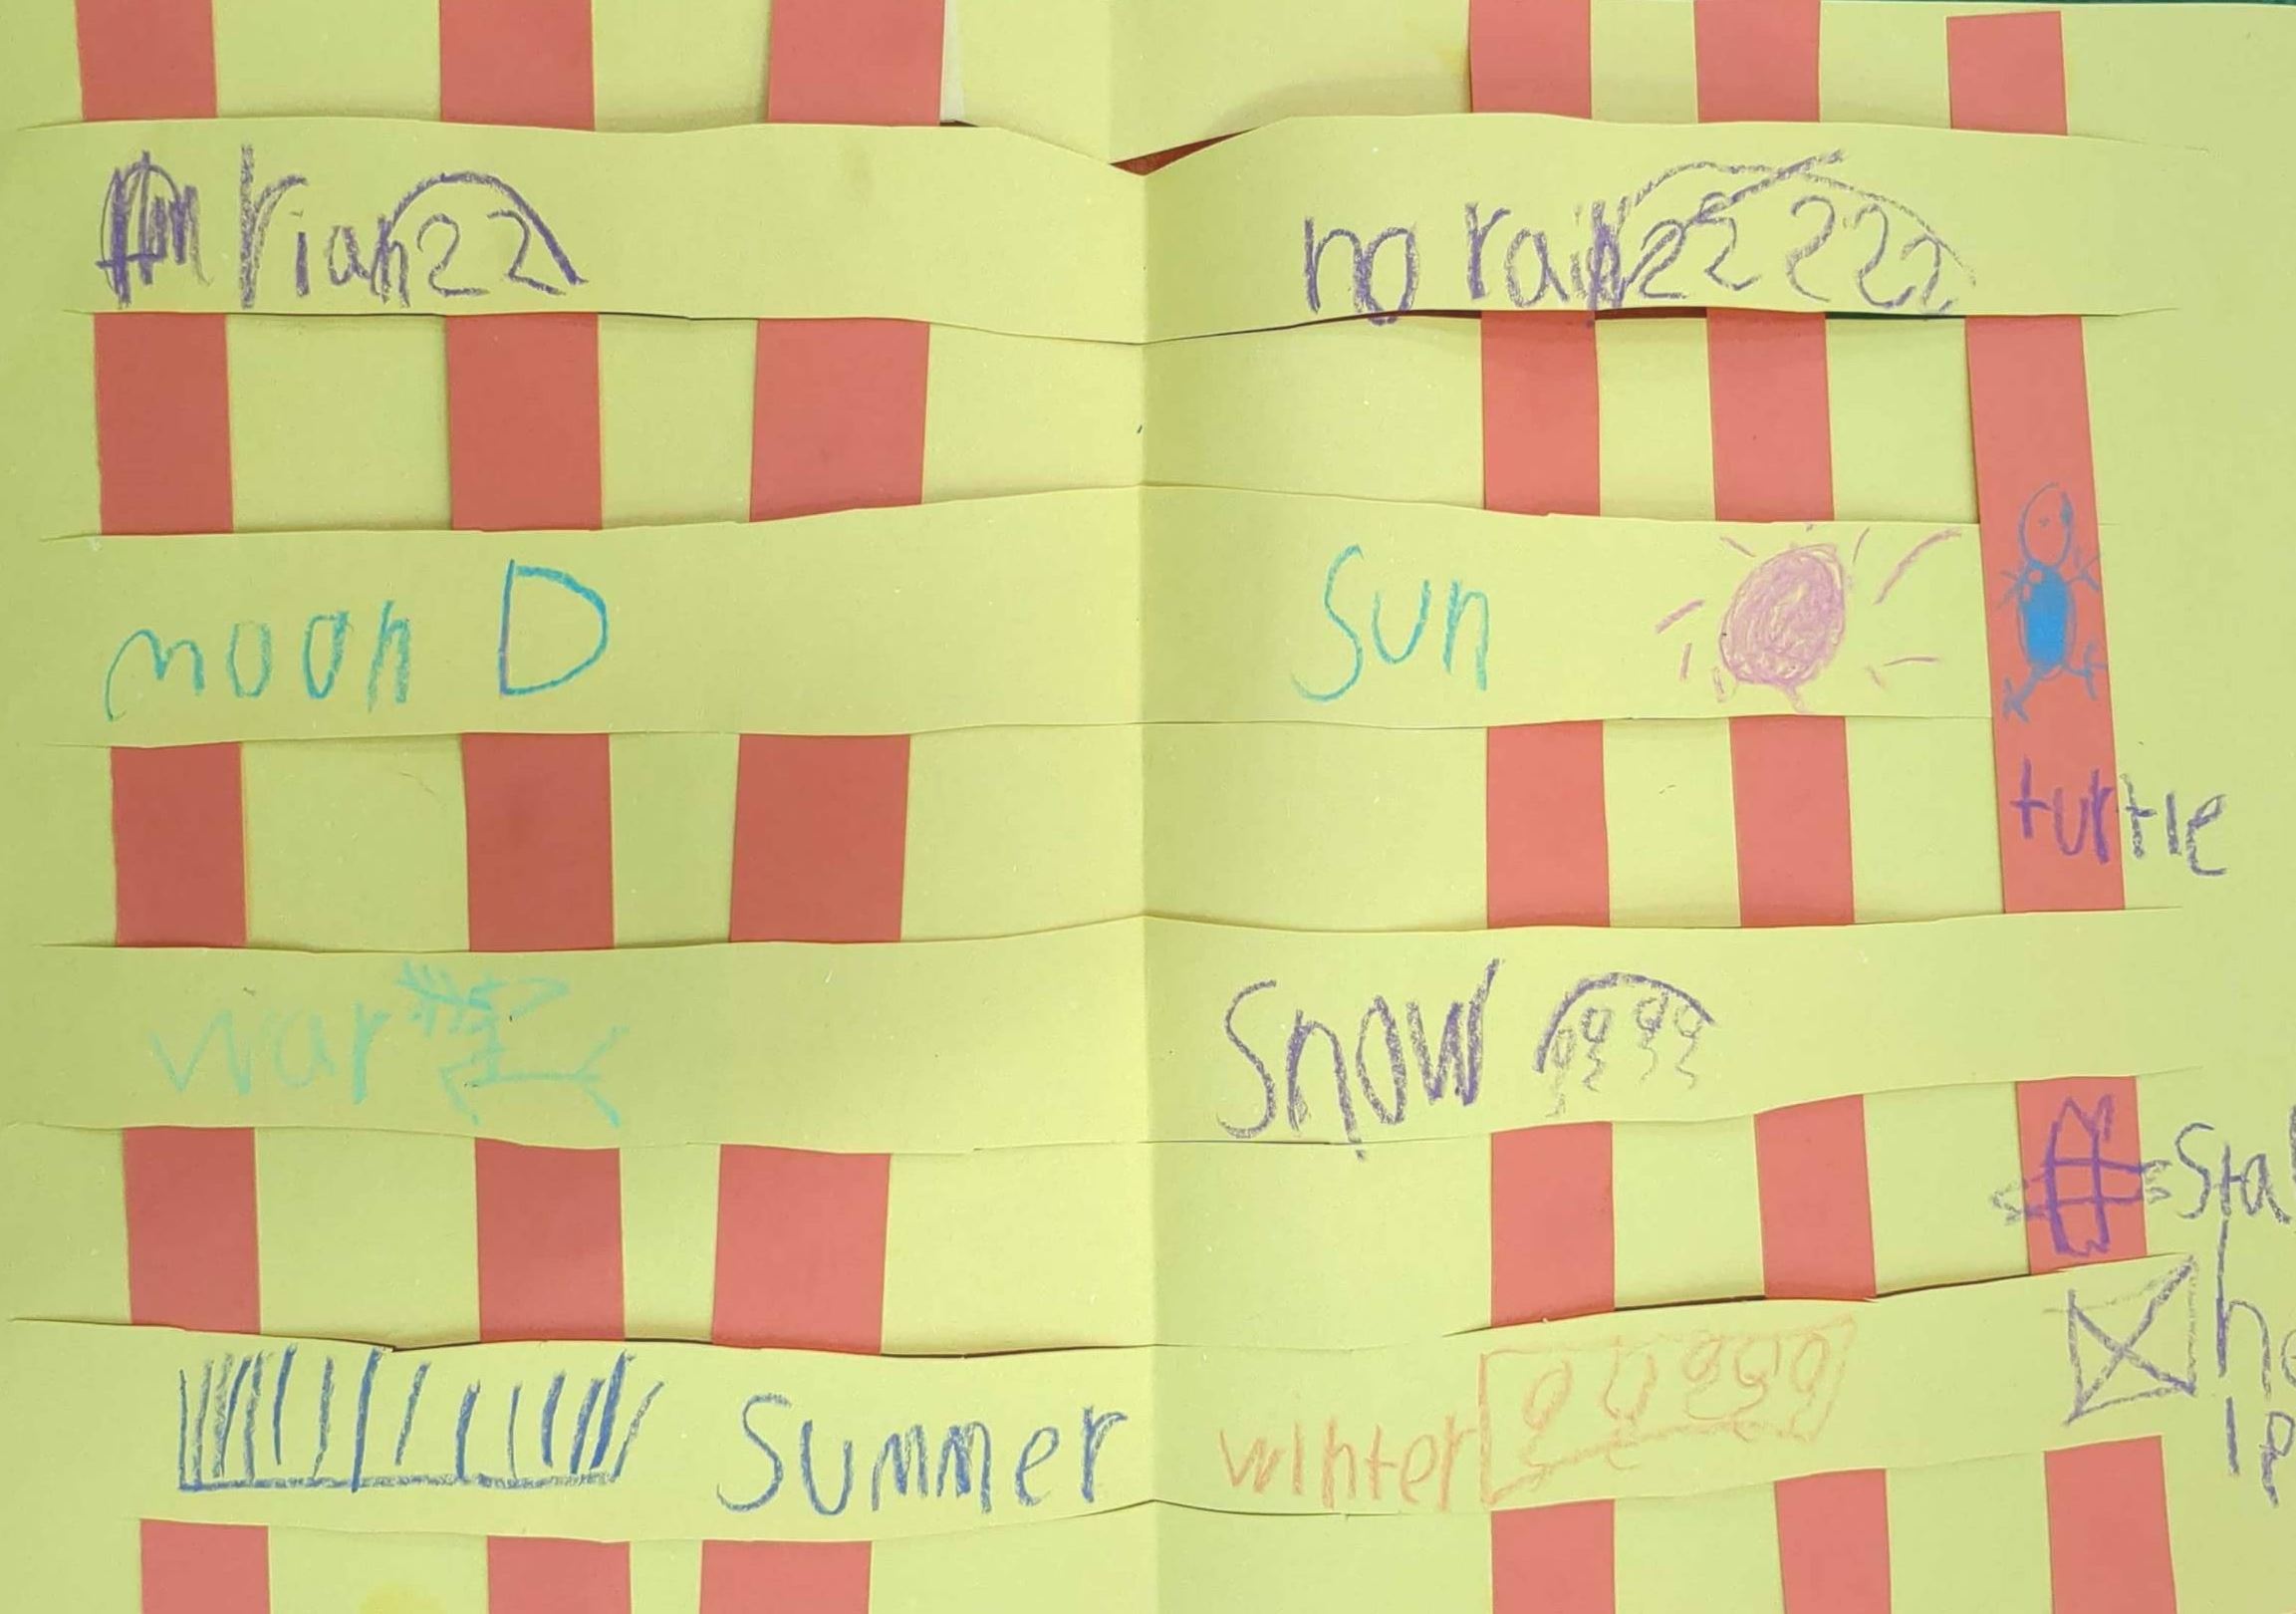 rian
no rain
moon
sun
turtle
war
snow
summer
winter